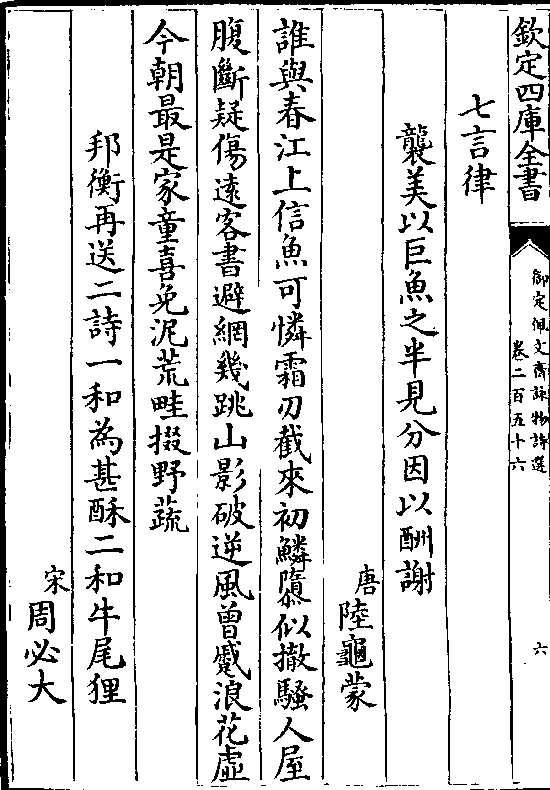 欽定四庫全書
御定佩文齋詠物詩選
卷二百五十六
六
七言律
襲美以巨魚之半見分因以酬謝
唐陸龜蒙
誰與春江上信魚可憐霜刃截來初鱗隳似撤騷人屋
腹斷疑傷遠客書避網幾跳山影破逆風曾蹙浪花虛
今朝最是家童喜免泥荒畦掇野蔬
邦衡再送二詩一和為甚酥二和牛尾狸
宋周必大